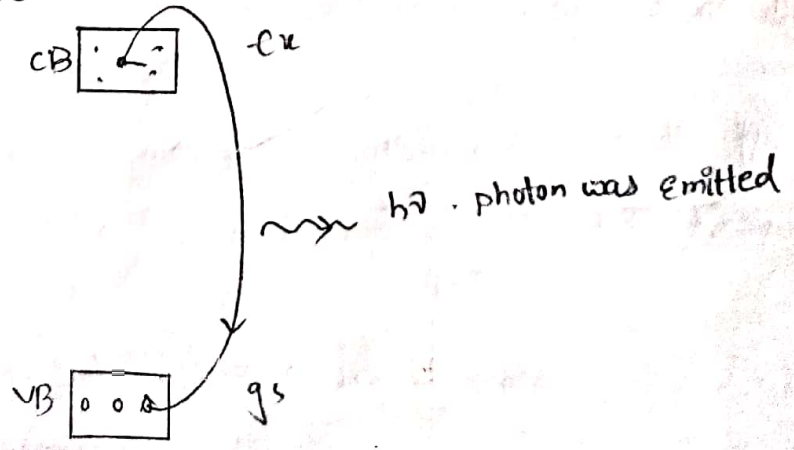 CB
hν. photon was emitted
VB
gs